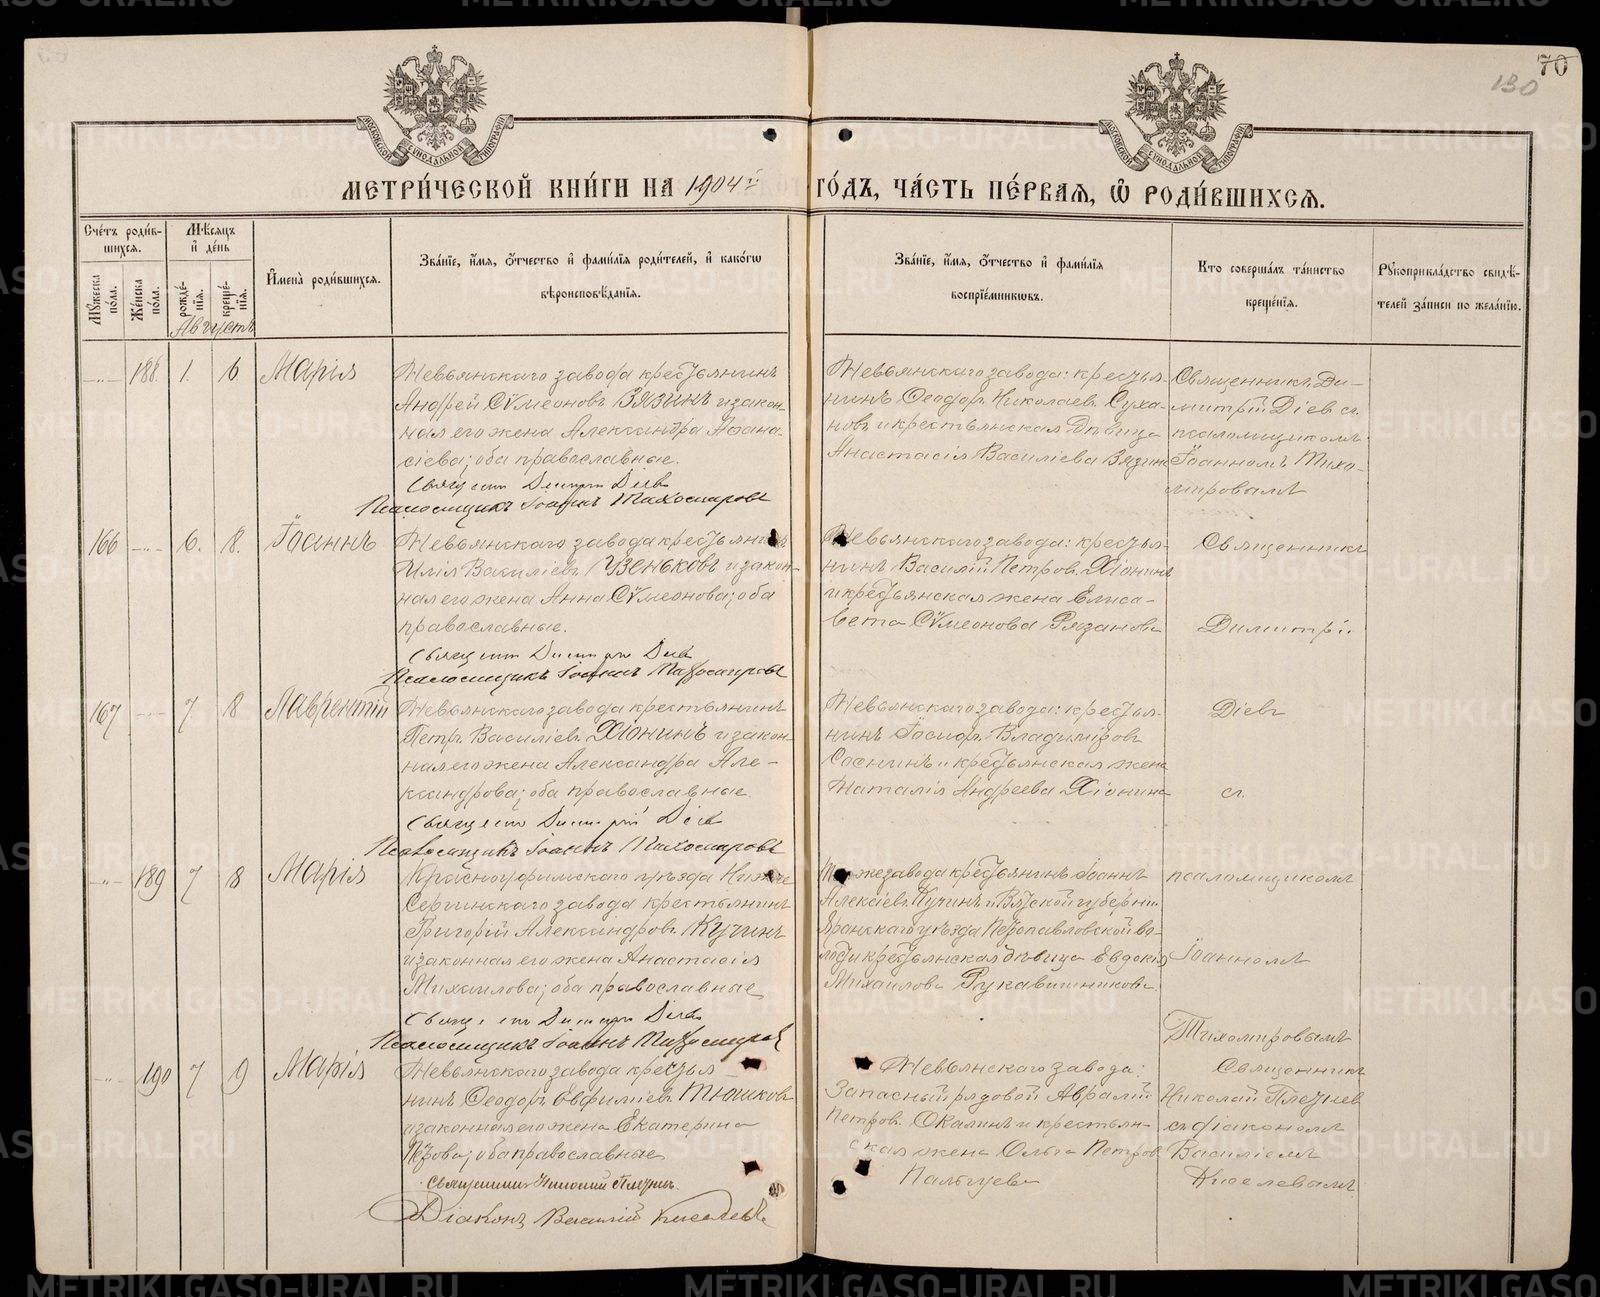 70
130
МОСКОВСКОЙ СУНОДАЛЬНОЙ ТИПОГРАФІИ
МОСКОВСКОЙ СУНОДАЛЬНОЙ ТИПОГРАФІИ
МЕТРИ́ЧЕСКОЙ КНИ́ГИ НА 1904й ГО́ДЪ, ЧА́СТЬ ПЕ́РВАЯ, Ѡ҆ РОДИ́ВШИХСЯ.
Сче́тъ роди́в-
шихся.
Мꙋ́жеска по́ла.
Же́нска по́ла.
Мѣ́сяцъ
и҆ де́нь
рожде́-
нїя.
креще́-
нїя.
И҆мена̀ роди́вшихся.
Зва́нїе, и҆́мя, ѻ҆́тчество и҆ фами́лїя роди́телей, и҆ како́гѡ
вѣроисповѣ́данїя.
Зва́нїе, и҆́мя, ѻ҆́тчество и҆ фами́лїя
воспрїе́мникѡвъ.
Кто соверша́лъ та́инство
креще́нїя.
Рꙋкоприкла́дство свидѣ́-
телей за́писи по жела́нїю.
Августъ
-"- 188. 1. 6. Марія
Невьянскаго завода крестьянинъ
Андрей Сѵмеоновъ Вязинъ и закон-
ная его жена Александра Афана-
сіева; оба православные.
Священ Димитрій Діевъ
Псаломщикъ Іоаннъ Тихомировъ
Невьянскаго завода: крестья-
нинъ Ѳеодоръ Николаевъ Суха-
новъ и крестьянская дѣвица
Анастасія Василіева Вязин
Священникъ Ди-
митрій Діевъ съ
псаломщикомъ
Іоанномъ Тихо-
мировымъ
166 -"- 6. 8. Іоаннъ
Невьянскаго завода крестьянинъ
Илія Василіевъ Узеньковъ и закон-
ная его жена Анна Сѵмеонова; оба
православные.
Священ Димитрій Діевъ
Псаломщикъ Іоаннъ Тихомировъ
Невьянскаго завода: крестья-
нинъ Василій Петровъ Хіонинъ
и крестьянская жена Елиса-
вета Сѵмеонова Рязанова
Священникъ
Димитрій
167 -"- 7 8 Лаврентій
Невьянскаго завода крестьянинъ
Петръ Василіевъ Хіонинъ и закон-
ная его жена Александра Але-
ксандрова; оба православные.
Священ Димитрій Діевъ
Псаломщикъ Іоаннъ Тихомировъ
Невьянскаго завода: крестья-
нинъ Іосифъ Владиміровъ
Соснинъ и крестьянская жена
Наталія Андреева Хіонина
Діевъ
съ
-"- 189 7 8 Марія
Красноуфимскаго уѣзда Нижне
Сергинскаго завода крестьянинъ
Григорій Александровъ Кучинъ
и законная его жена Анастасія
Михаилова; оба православные
Священ Димитрій Діевъ
Псаломщикъ Іоаннъ Тихомировъ
Того же завода крестьянинъ Іоаннъ
Алексіевъ Кучинъ и Вятской губерніи
Яранскаго уѣзда Петропавловской во-
лости крестьянская дѣвица Евдокія
Михаилова Рукавишникова
псаломщикомъ
Іоанномъ
Тихомировымъ
-"- 190 7 9 Марія
Невьянскаго завода крестья-
нинъ Ѳеодоръ Евфиміевъ Тюшковъ
и законная его жена Екатерина
Петрова; оба православные
Священникъ Николай Плетнев
Діаконъ Василій Киселевъ
Невьянскаго завода:
Запасный рядовой Аврамій
Петровъ Окалинъ и крестьян-
ская жена Ольга Петров
Пальцева
Священник
Николай Плетнев
съ діакономъ
Василіемъ
Киселевымъ
METRIKI.GASO-URAL.RU